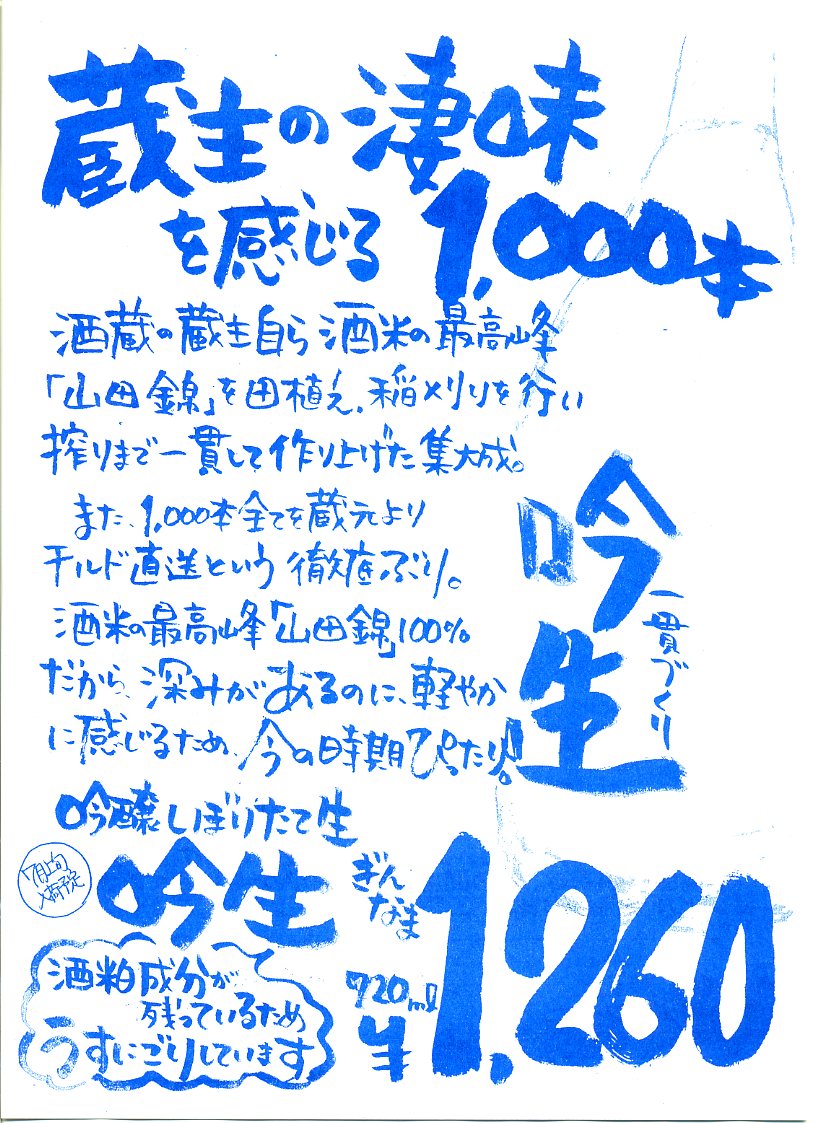 蔵主の凄味
を感じる 1,000本
酒蔵の蔵主自ら酒米の最高峰
「山田錦」を田植え、稲刈りを行い
搾りまで一貫して作り上げた集大成。
また、1,000本全てを蔵元より
チルド直送という徹底ぶり。
酒米の最高峰「山田錦」100%
だから、深みがあるのに、軽やか
に感じるため、今の時期ぴったり!!。
吟生
一貫づくり
吟醸しぼりたて生
7月上旬
入荷予定
吟生
ぎん
なま
720ml
¥1,260
酒粕成分が
残っているため
うすにごりしています